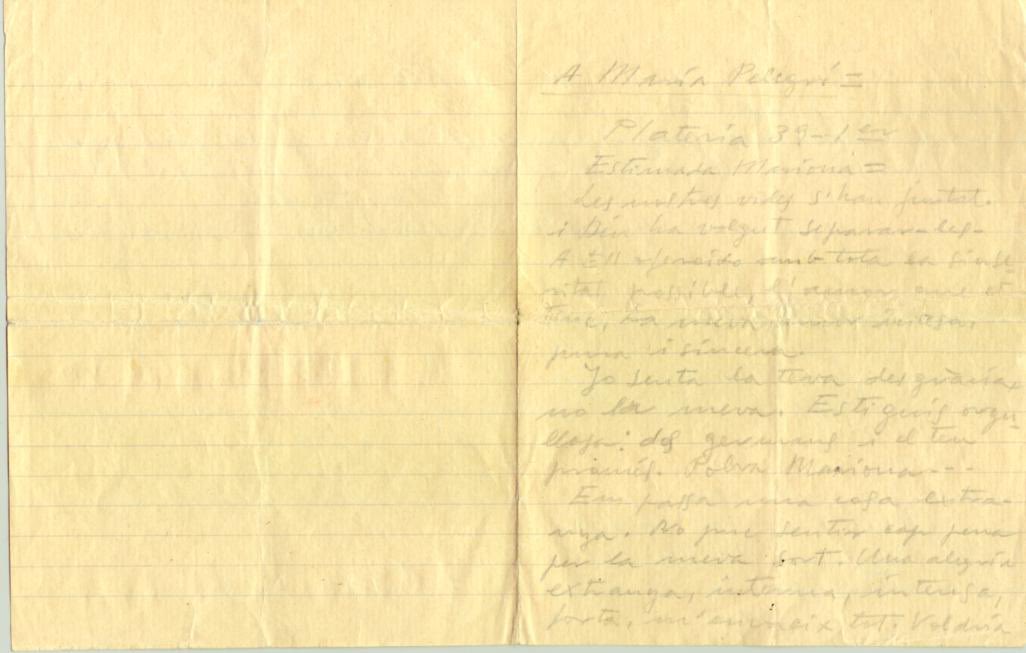 A Maria Pelegrí =
Plateria 39-1er
Estimada Mariona =
Les nostres vides s'han juntat.
i Déu ha volgut separar-les-
A Ell ofereixo amb tota la since-
ritat possible, l'amor que et
tinc, la meva amor intensa,
pura i sincera.
Jo sento la teva desgracia,
no la meva. Estiguis orgu-
llosa: dos germans i el teu
promés. Pobra Mariona---
Em passa una cosa extra-
nya. No puc sentir cap pena
per la meva sort. Una alegria
extranya, interna, intensa,
forta, m'umpleix tot. Voldria